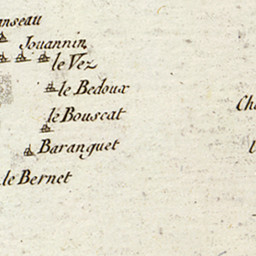 Jouannin
le Vez
le Bedoux
le Bouscat
Baranguet
le Bernet